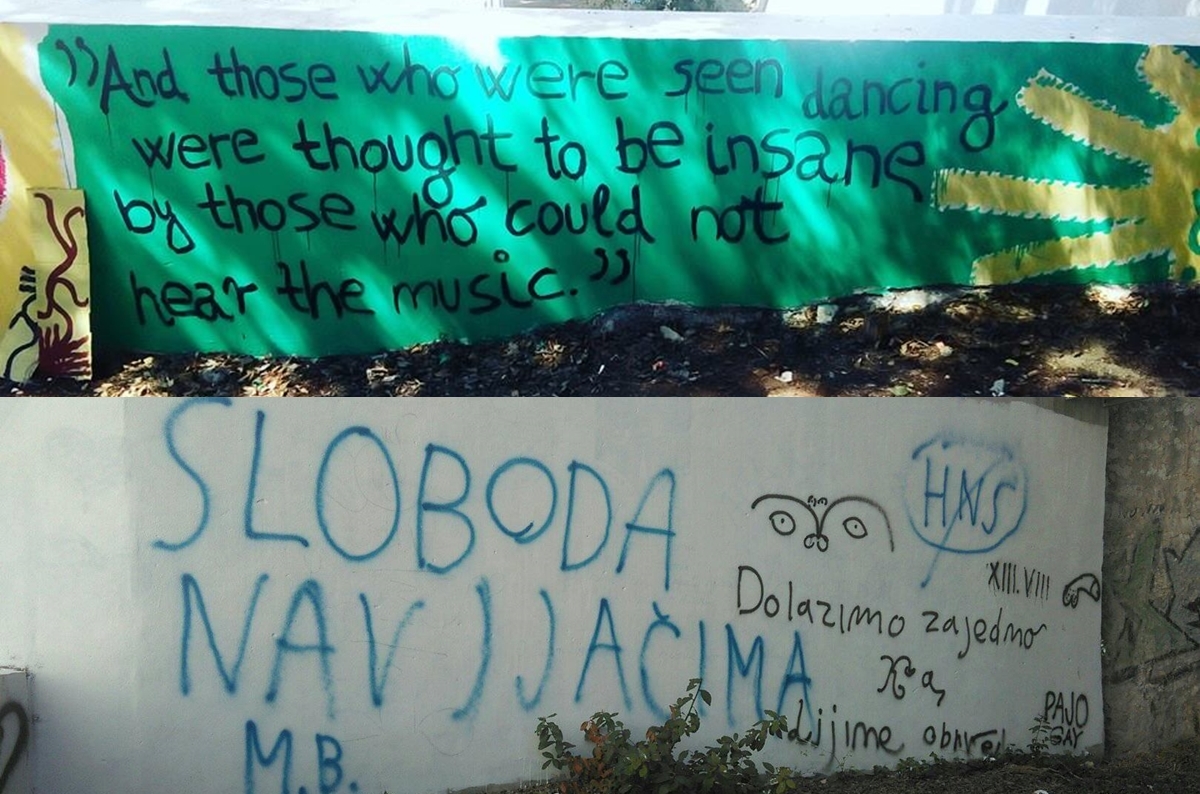 ”And those who were seen dancing
were thought to be insane
by those who could not
hear the music.”
SLOBODA
NAVIJAČIMA
M.B.
HNS
XIII.VIII
Dolazimo zajedno
PAJO
GAY